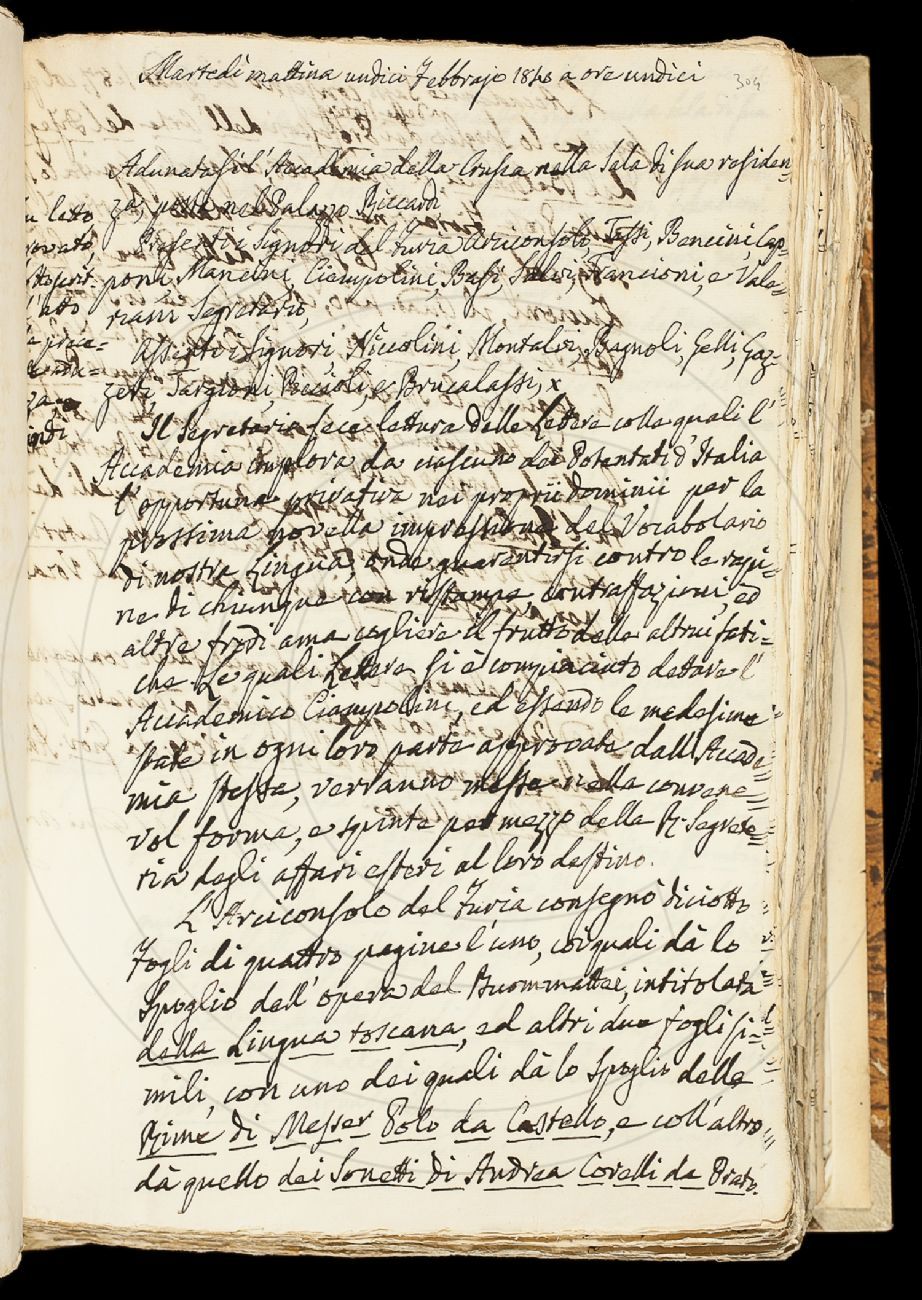 Martedì mattina undici Febbrajo 1840 a ore undici
304
Adunatasi l'Accademia della Crusca nella Sala di sua residen=
za, posta nel Palazzo Riccardi,
Presenti i Signori del Furia Arciconsolo, Tassi, Bencini, Cap=
poni, Mancini, Ciampolini, Busi, Salvi, Francioni, e Vale=
riani Segretario,
Assenti i Signori Niccolini, Montalvi, Bagnoli, Gelli, Gaz=
zeri, Targioni, Puccioli, e Brucalassi, x
Il Segretario fece lettura delle Lettere colle quali l'
Accademia implora da ciascuno dei Potentati d'Italia
l'opportuna privativa nei proprii dominii per la
prossima novella impressione del Vocabolario
di nostra Lingua, onde guarentirsi contro le rapi=
ne di chiunque con ristampe, contraffazioni, ed
altre frodi ama cogliere il frutto delle altrui fati=
che. Le quali Lettere si è compiaciuto dettare l'
Accademico Ciampolini, ed essendo le medesime
state in ogni loro parte approvate dall'Accade=
mia stessa, verranno messe nella convene=
vol forma, e spinte per mezzo della R. Segrete=
ria degli affari esteri al loro destino.
L'Arciconsolo del Furia consegnò diciotto
Fogli di quattro pagine l'uno, coi quali dà lo
Spoglio dell'opera del Buommattei, intitolata
della Lingua toscana, ed altri due fogli si=
mili, con uno dei quali dà lo Spoglio delle
Rime di Messer Polo da Castello, e coll'altro
dà quello dei Sonetti di Andrea Corelli da Prato.